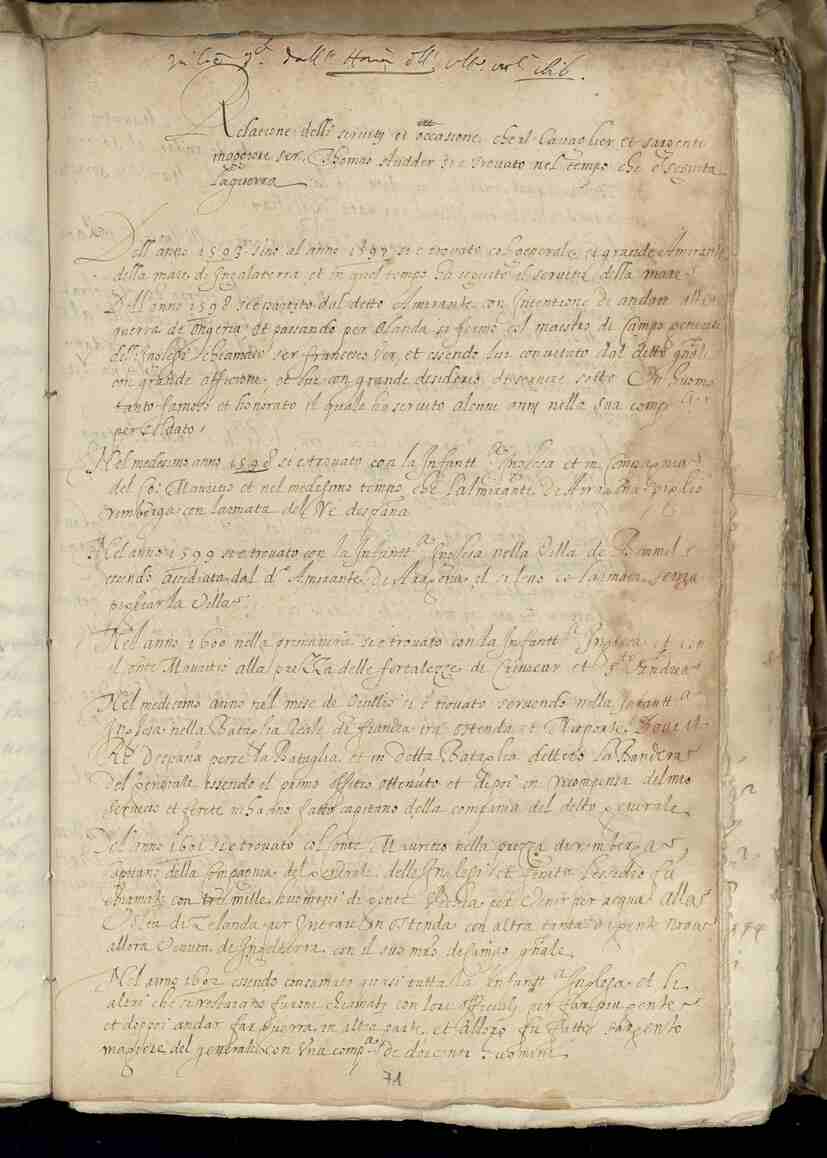 dall
Relatione delli servitij et occasione, che al Cavaglier et sargente
maggiore ser. Thomas Studder si e trovato nel tempo che ha seguita
la guerra
Dell'anno 1593 sino al anno 1597 si e trovato col generale, et grande Amirante
della mare di Ingalaterra et in quel tempo ha seguito il servitio della mare
Dell'anno 1598 si e partito dal detto Amirante con Intentione de andare alla
guerra de Ongeria et passando per Olanda si fermo col maestro di Campo generale
delli Inglesi chiamato ser francesco Ver, et essendo lui convitato dal detto gnãle
con grande affectione, et lui con grande desiderio de servire sotto Un huomo
tanto famoso et honorato il quale ha servito alcuni anni nella sua comp.a
per soldato,
Nel medesimo anno 1598 si e trovato con la Infantt.a Inglesa et in Compagnia
del Co: Mauritio et nel medesimo tempo che l'almirante De Arragona piglio
Rimberga con l'armata del Re de spana
Nel anno 1599 si e trovato con la Infantt.a Inglesa nella Villa de Bommel
essendo assediata dal d.o Amirante De Aragona et si levo co la armata senza
pigliar la Villa
Nel anno 1600 nella primavera si e trovato con la Infantt.a Inglesa et con
il Conte Mauritio alla prezza delle fortalezze di Crevecur et S.t Andrea
Nel medesimo anno nel mese de Giullio si e trovato servendo nella Infantt.a
Inglesa nella Bataglia Reale di fiandra tra Ostenda et Niuporte, Dove il
Re De spana perse la Bataglia et in detta Bataglia la Bandera
Del generale, essendo il primo offitio ottenuto et dipoi in ricompensa del mio
servitio et ferite m'hanno fatto capitano della compania del detto generale
Del'anno 1601 si e trovato col Conte Mauritio nella prezza de rimberga,
Capitano della Compagnia del generale delli Inglesi et
chiamato con tre mille huomini di gente per acqua alla
Costa di Zelanda per Intrare in Ostenda con altra tanta di gente nova
allora Venuta de Ingelterra con il suo m.ro de campo gnãle
Nel anno 1602 essendo consumato quasi tutta la Infantt.a Inglesa et li
altri che si restavano furono chiamati con loro officiali per far piu gente
et dopoi andar far guerra in altra parte, et allora fu fatto sargento
maggiore del generale con una comp.a de doicenti huomini.
71